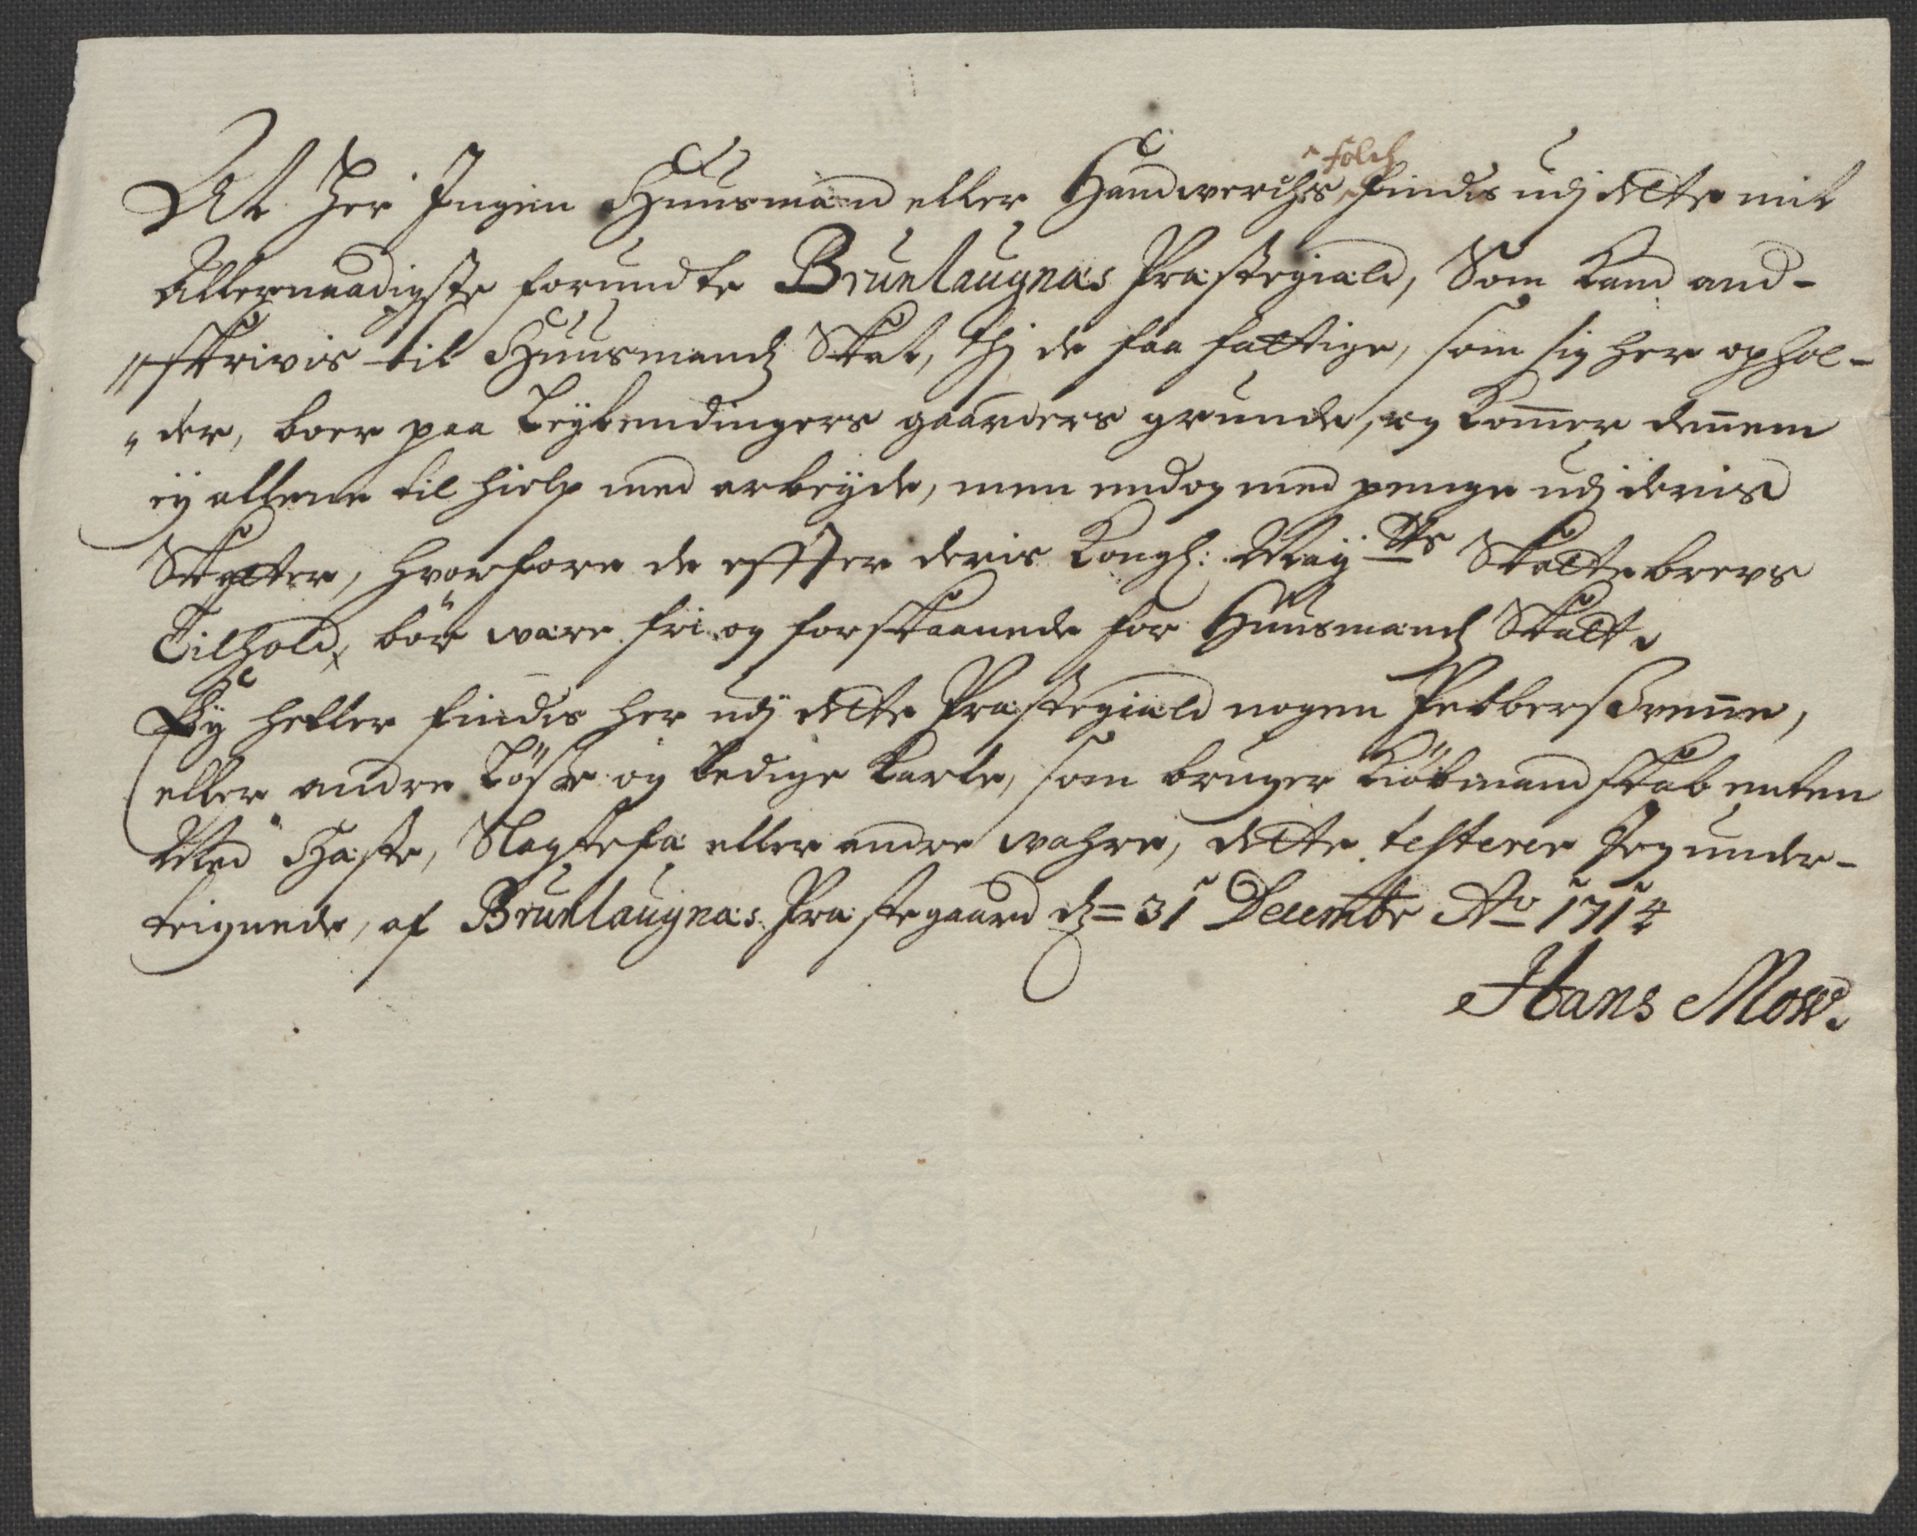 At her Ingen Huusmænd eller Handwerchs folch findis udj dette mit
Allernaadigste forundte Brunlaugnæs Præstegiæld, Som kand and-
skrivis til Huusmands Skat, thj de faa fattige, som sig her ophol-
der, boer paa Leylendingers gaarders grunde, og kom̅er den̅em
ey allene til hielp med arbeyde, men endog med penge udj deris
Skatter, hvorfore de effter deris Kongl: Mayᵗᵗˢ Skattebrevs
Tilhold, bör være fri og forskaanede for Huusmands Skatt.
Ey heller findis her udj dette Præstegiæld nogen Pebbersven̅e,
eller andre Löse og Ledige Karle, som bruger Kiöbmandskab enten
Med Hæste, Slagtefæ eller andre wahre, dette testerer Jeg under-
teignede, af Brunlaugnæs Præstegaard d= 31 Decembr Aᵒ 1714
Hans Mow.